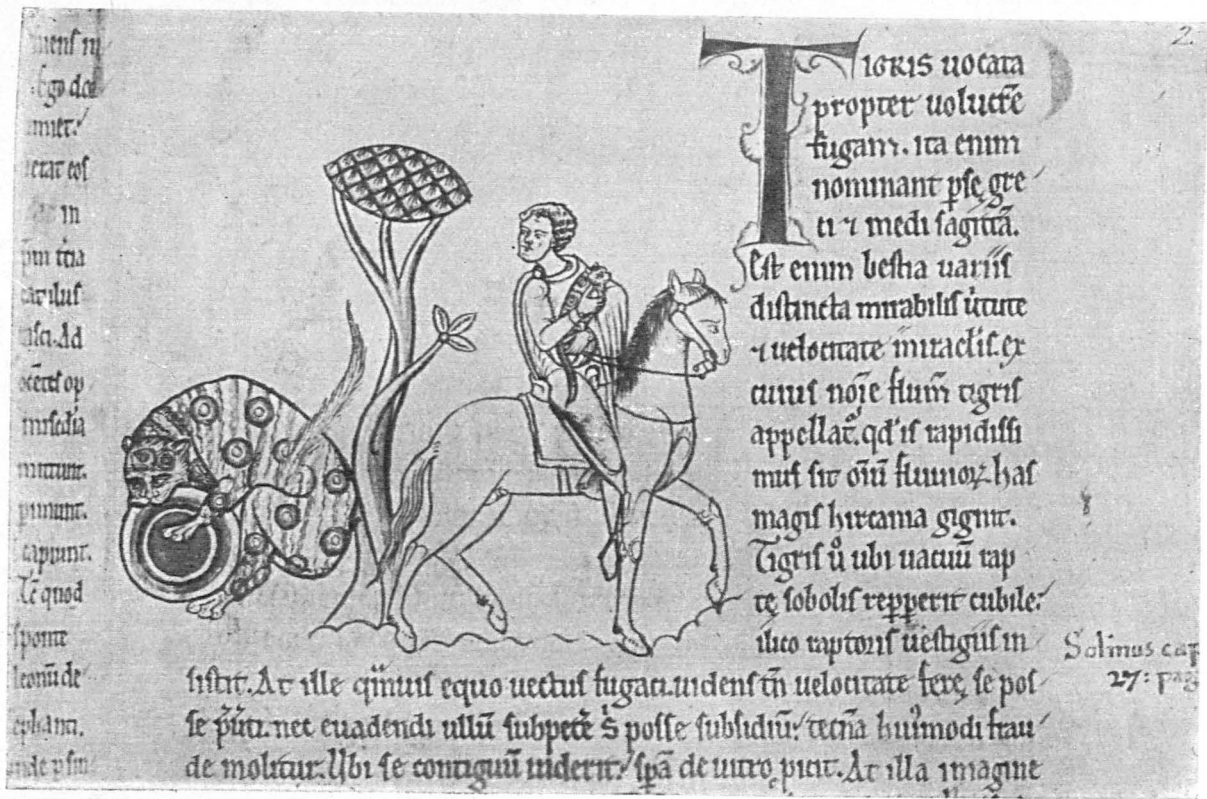 2
mens in
ego do
amet.
in
catulus
Ad
op
insedia
mittunt.
capiunt.
quod
sponte
leonū de
ephanti.
TIGRIS uocata
propter uolucrē
fugam. ita enim
nominant ꝑsę gre
ci ⁊ medi sagittā.
Est enim bestia uariis
distincta mirabilis ủtute
⁊ uelocitate maclis. ex
cuius noīe flum̄ tigris
appellat᷑. qd' is rapidissi
mus sit oīū fluuioꝝ. has
magis hircania gignit.
Tigris ủ ubi uacuū rap
tę sobolis repperit cubile:
ilico raptoris uestigiis in
sistit. At ille quis equo uectus fugaci. uidens tn̄ uelocitate ferę se pos
se nec euadendi ullū subpetẽ posse subsidiū: tecna hui'modi frau
de molitur. Ubi se contiguū uiderit: spā de uitro picit. At illa imagine
Solinus cap
27: pag